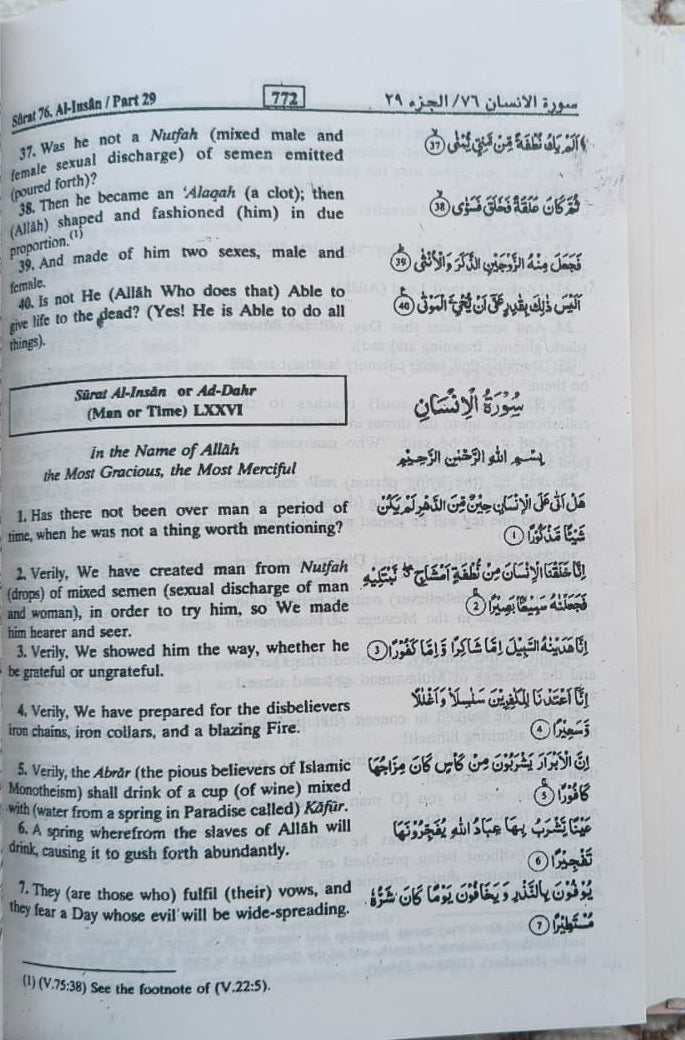 Sûrat 76. Al-Insân / Part 29
772
سورة الانسان ٧٦/ الجزء ٢٩
37. Was he not a Nutfah (mixed male and
female sexual discharge) of semen emitted
(poured forth)?
38. Then he became an ‘Alaqah (a clot); then
(Allâh) shaped and fashioned (him) in due
proportion.(1)
39. And made of him two sexes, male and
female.
40. Is not He (Allâh Who does that) Able to
give life to the dead? (Yes! He is Able to do all
things).
اَلَمْ يَكُ نُطْفَةً مِّنْ مَّنِيٍّ يُّمْنٰى 37
ثُمَّ كَانَ عَلَقَةً فَخَلَقَ فَسَوّٰى 38
فَجَعَلَ مِنْهُ الزَّوْجَيْنِ الذَّكَرَ وَالْاُنْثٰى 39
اَلَيْسَ ذٰلِكَ بِقٰدِرٍ عَلٰٓى اَنْ يُّحْيَِۧ الْمَوْتٰى 40
Sûrat Al-Insân or Ad-Dahr
(Man or Time) LXXVI
سُوْرَةُ الْاِنْسَانِ
In the Name of Allâh
the Most Gracious, the Most Merciful
بِسْمِ اللهِ الرَّحْمٰنِ الرَّحِيْمِ
1. Has there not been over man a period of
time, when he was not a thing worth mentioning?
هَلْ اَتٰى عَلَى الْاِنْسَانِ حِيْنٌ مِّنَ الدَّهْرِ لَمْ يَكُنْ
شَيْئًا مَّذْكُوْرًا 1
2. Verily, We have created man from Nutfah
(drops) of mixed semen (sexual discharge of man
and woman), in order to try him, so We made
him hearer and seer.
اِنَّا خَلَقْنَا الْاِنْسَانَ مِنْ نُّطْفَةٍ اَمْشَاجٍ نَّبْتَلِيْهِ
فَجَعَلْنٰهُ سَمِيْعًۢا بَصِيْرًا 2
3. Verily, We showed him the way, whether he
be grateful or ungrateful.
اِنَّا هَدَيْنٰهُ السَّبِيْلَ اِمَّا شَاكِرًا وَّاِمَّا كَفُوْرًا 3
4. Verily, We have prepared for the disbelievers
iron chains, iron collars, and a blazing Fire.
اِنَّآ اَعْتَدْنَا لِلْكٰفِرِيْنَ سَلٰسِلَا۟ وَاَغْلٰلًا
وَّسَعِيْرًا 4
5. Verily, the Abrâr (the pious believers of Islamic
Monotheism) shall drink of a cup (of wine) mixed
with (water from a spring in Paradise called) Kâfûr.
اِنَّ الْاَبْرَارَ يَشْرَبُوْنَ مِنْ كَاْسٍ كَانَ مِزَاجُهَا
كَافُوْرًا 5
6. A spring wherefrom the slaves of Allâh will
drink, causing it to gush forth abundantly.
عَيْنًا يَّشْرَبُ بِهَا عِبَادُ اللهِ يُفَجِّرُوْنَهَا
تَفْجِيْرًا 6
7. They (are those who) fulfil (their) vows, and
they fear a Day whose evil will be wide-spreading.
يُوْفُوْنَ بِالنَّذْرِ وَيَخَافُوْنَ يَوْمًا كَانَ شَرُّهٗ
مُسْتَطِيْرًا 7
(1) (V.75:38) See the footnote of (V.22:5).